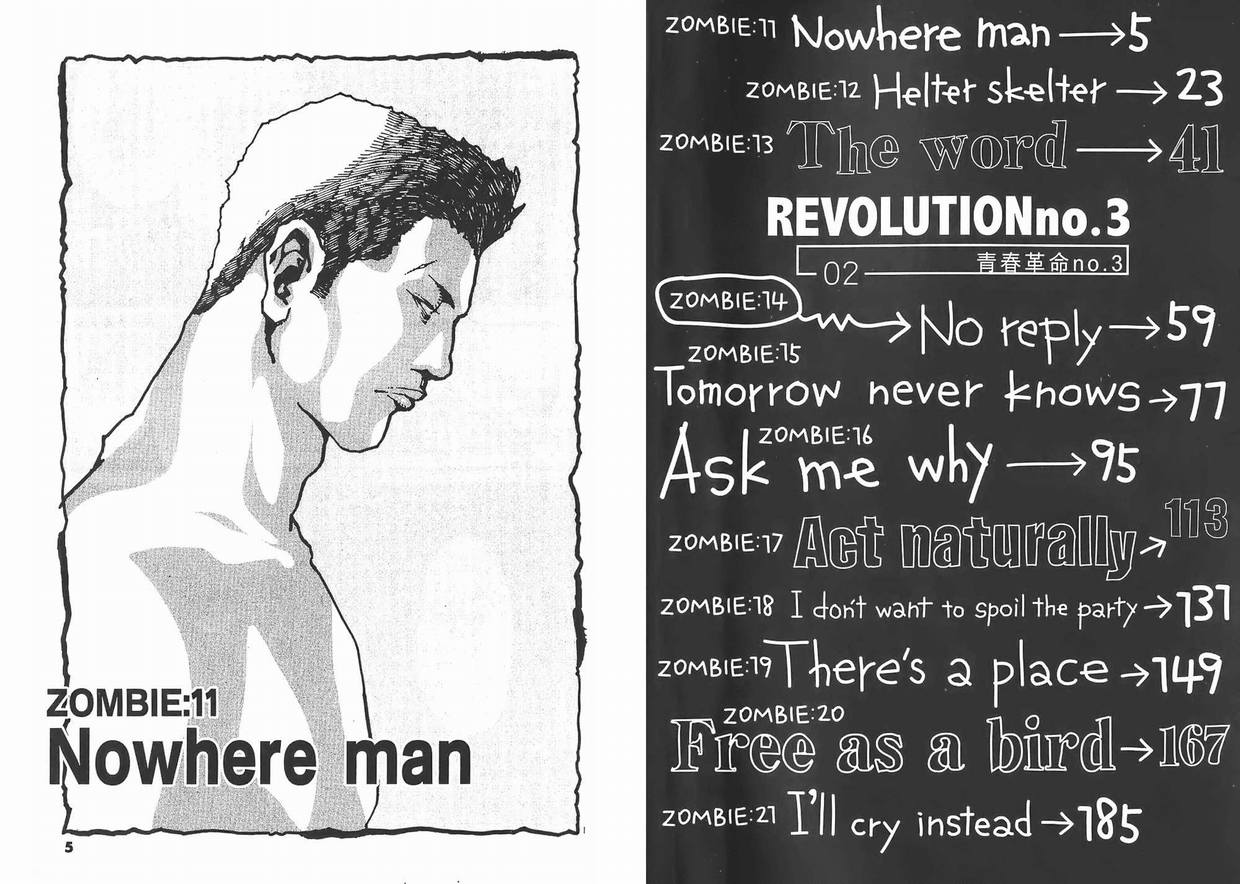 ZOMBIE:11
Nowhere man
5
ZOMBIE:11 Nowhere man → 5
ZOMBIE:12 Helter skelter → 23
ZOMBIE:13 The word → 41
REVOLUTION no.3
02 青春革命no.3
ZOMBIE:14 → No reply → 59
ZOMBIE:15
Tomorrow never knows → 77
ZOMBIE:16
Ask me why → 95
ZOMBIE:17 Act naturally → 113
ZOMBIE:18 I don't want to spoil the party → 131
ZOMBIE:19 There's a place → 149
ZOMBIE:20
Free as a bird → 167
ZOMBIE:21 I'll cry instead → 185